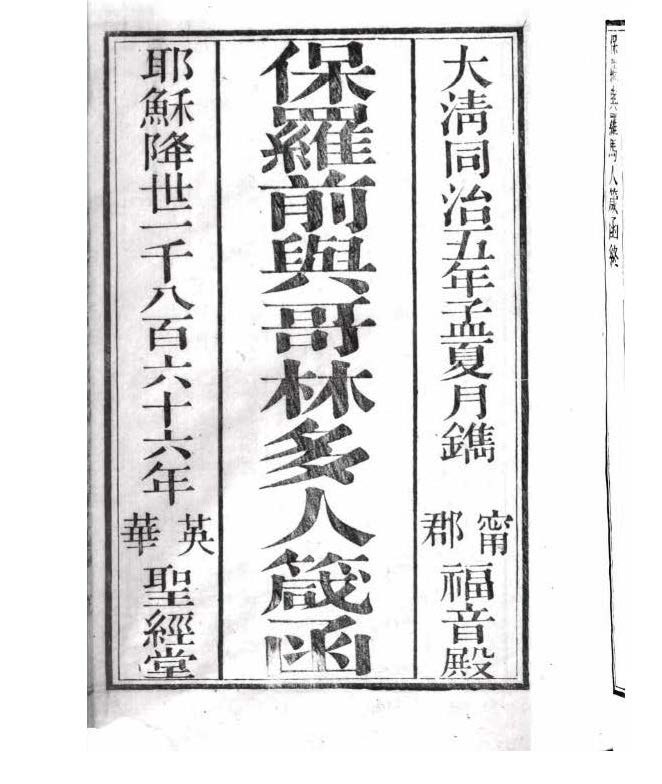 保羅與羅馬人箴函終
大清同治五年孟夏月鐫 甯郡 福音殿
保羅前與哥林多人箴函
耶穌降世一千八百六十六年 英華 聖經堂